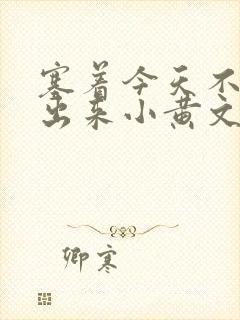 塞着今天不
出来小黄文
卿寒